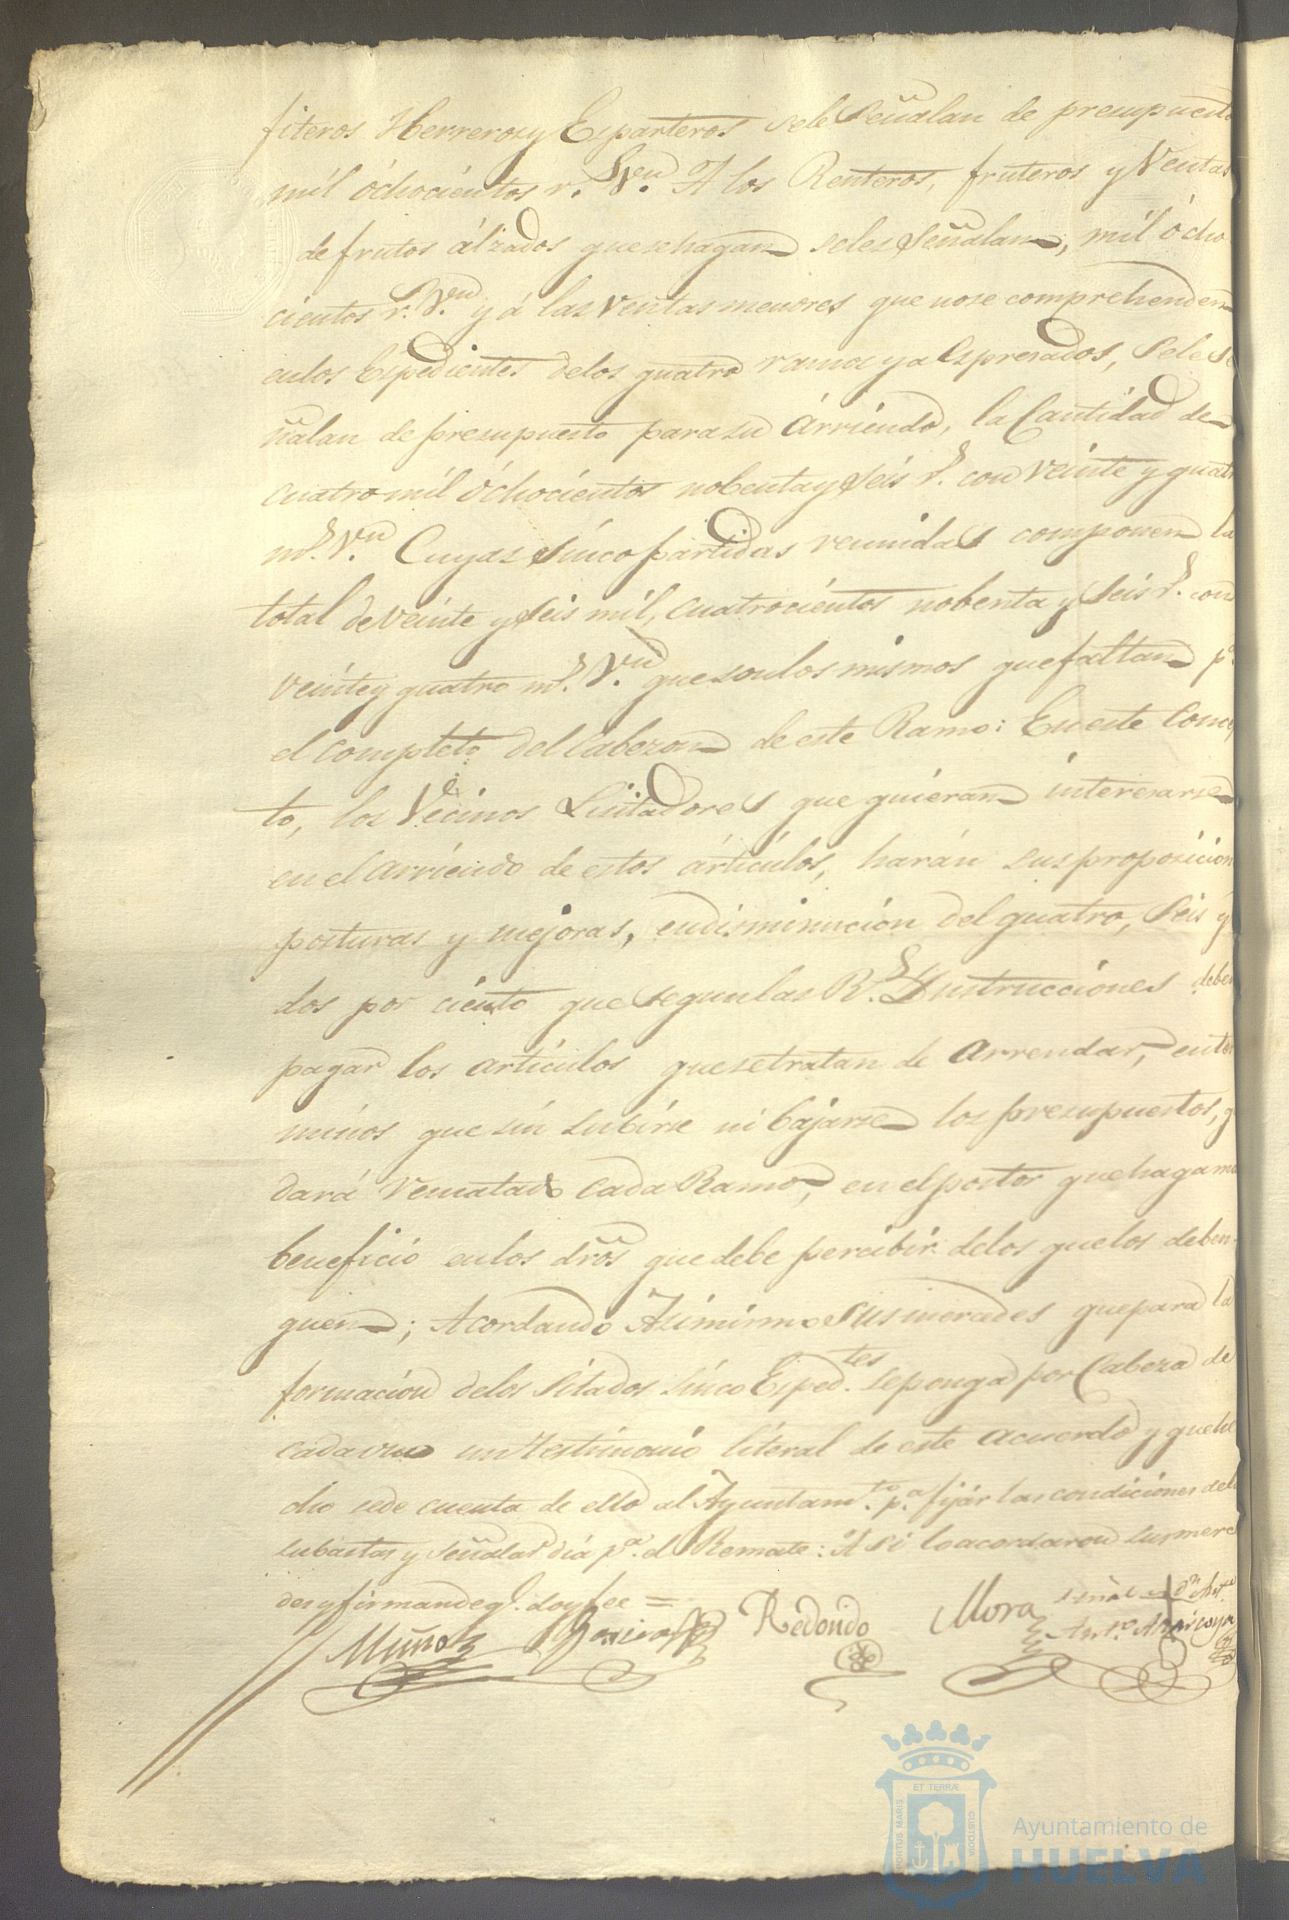 fiteros Herreros y Esparteros sele Señalan de presupuesto
mil óchocientos r.s V.on A los Renteros, fruteros y Ventas
de frutos álzados que se hagan seles Señalan, mil ócho
cientos r.s V.on y á las Ventas menores que no se comprehenden
en los Espedientes delos quatro ramos ya Espresados, Sele Se
ñalan de presupuesto para su Árriendo, la Cantidad de
cuatro mil óchocientos nobenta y Seis r.s con Veinte y quatro
m.s V.on Cuyas Sinco partidas reunidas componen la
total de Veinte y Seis mil, cuatrocientos nobenta y Seis r.s con
Veinte y quatro m.s V.on que son los mismos que faltan p.a
el completo del Cabezon de este Ramo: En este Conce
to, los Vecinos Lisitadores que quieran interesarse
en el Arriendo de estos ártículos, harán sus proposicion
posturas y mejoras, en disminución del quatro, Seis y
dos por ciento que segun las R.s Ynstrucciones deben
pagar los artículos que se tratan de Arrendar, enter
minos que sin subirse ni bajarse los presupuestos, q
dará rematado cada Ramo, en el postor que haga mas
beneficio en los dros que debe percibir delos que los deben
guen; Acordando Asimismo Sus mercedes que para la
formación delos Sitados Sinco Esped.tes se ponga por Cabeza de
cada uno un Testimonio literal de este acuerdo y que he
cho sede cuenta de ello al Ayuntam.to p.a fijar las condiciones dela
subastas y Señalar día p.a el Remate: Asi lo acordaron sus merce
des y firman de q.e doy fee =
Muñoz Redondo Mora Señal + de